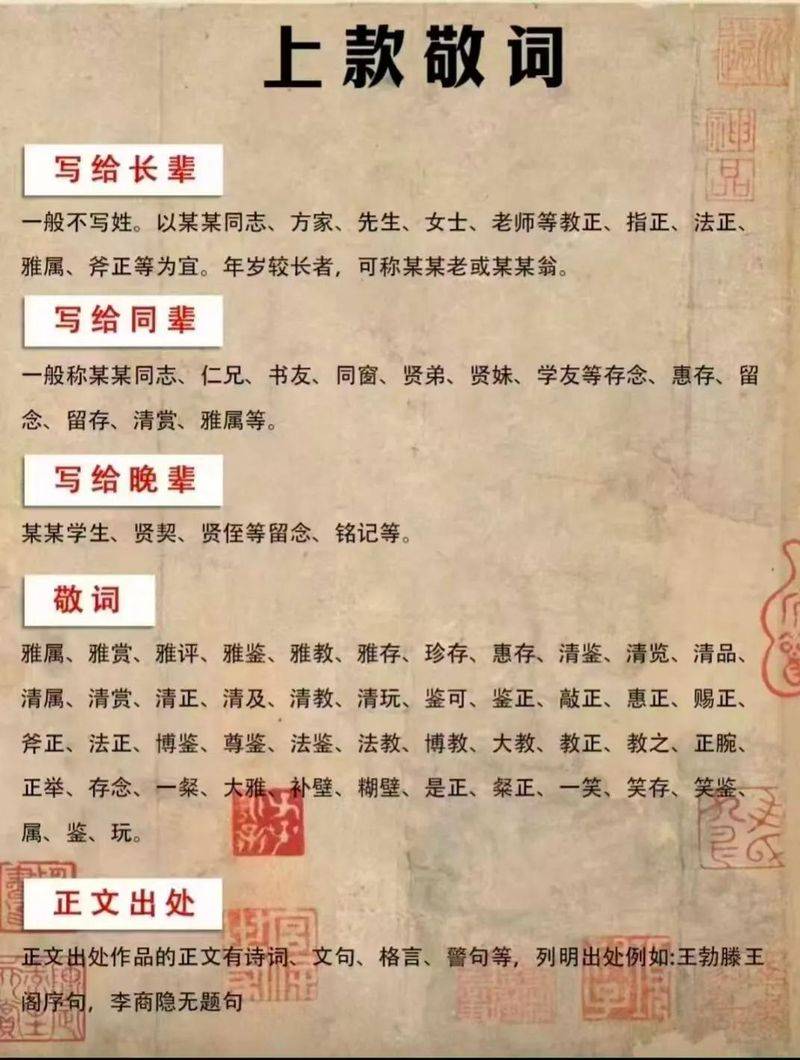 上款敬词
写给长辈
一般不写姓。以某某同志、方家、先生、女士、老师等教正、指正、法正、
雅属、斧正等为宜。年岁较长者，可称某某老或某某翁。
写给同辈
一般称某某同志、仁兄、书友、同窗、贤弟、贤妹、学友等存念、惠存、留
念、留存、清赏、雅属等。
写给晚辈
某某学生、贤契、贤侄等留念、铭记等。
敬词
雅属、雅赏、雅评、雅鉴、雅教、雅存、珍存、惠存、清鉴、清览、清品、
清属、清赏、清正、清及、清教、清玩、鉴可、鉴正、敲正、惠正、赐正、
斧正、法正、博鉴、尊鉴、法鉴、法教、博教、大教、教正、教之、正腕、
正举、存念、一粲、大雅、补壁、糊壁、是正、粲正、一笑、笑存、笑鉴、
属、鉴、玩。
正文出处
正文出处作品的正文有诗词、文句、格言、警句等，列明出处例如:王勃滕王
阁序句，李商隐无题句
神品